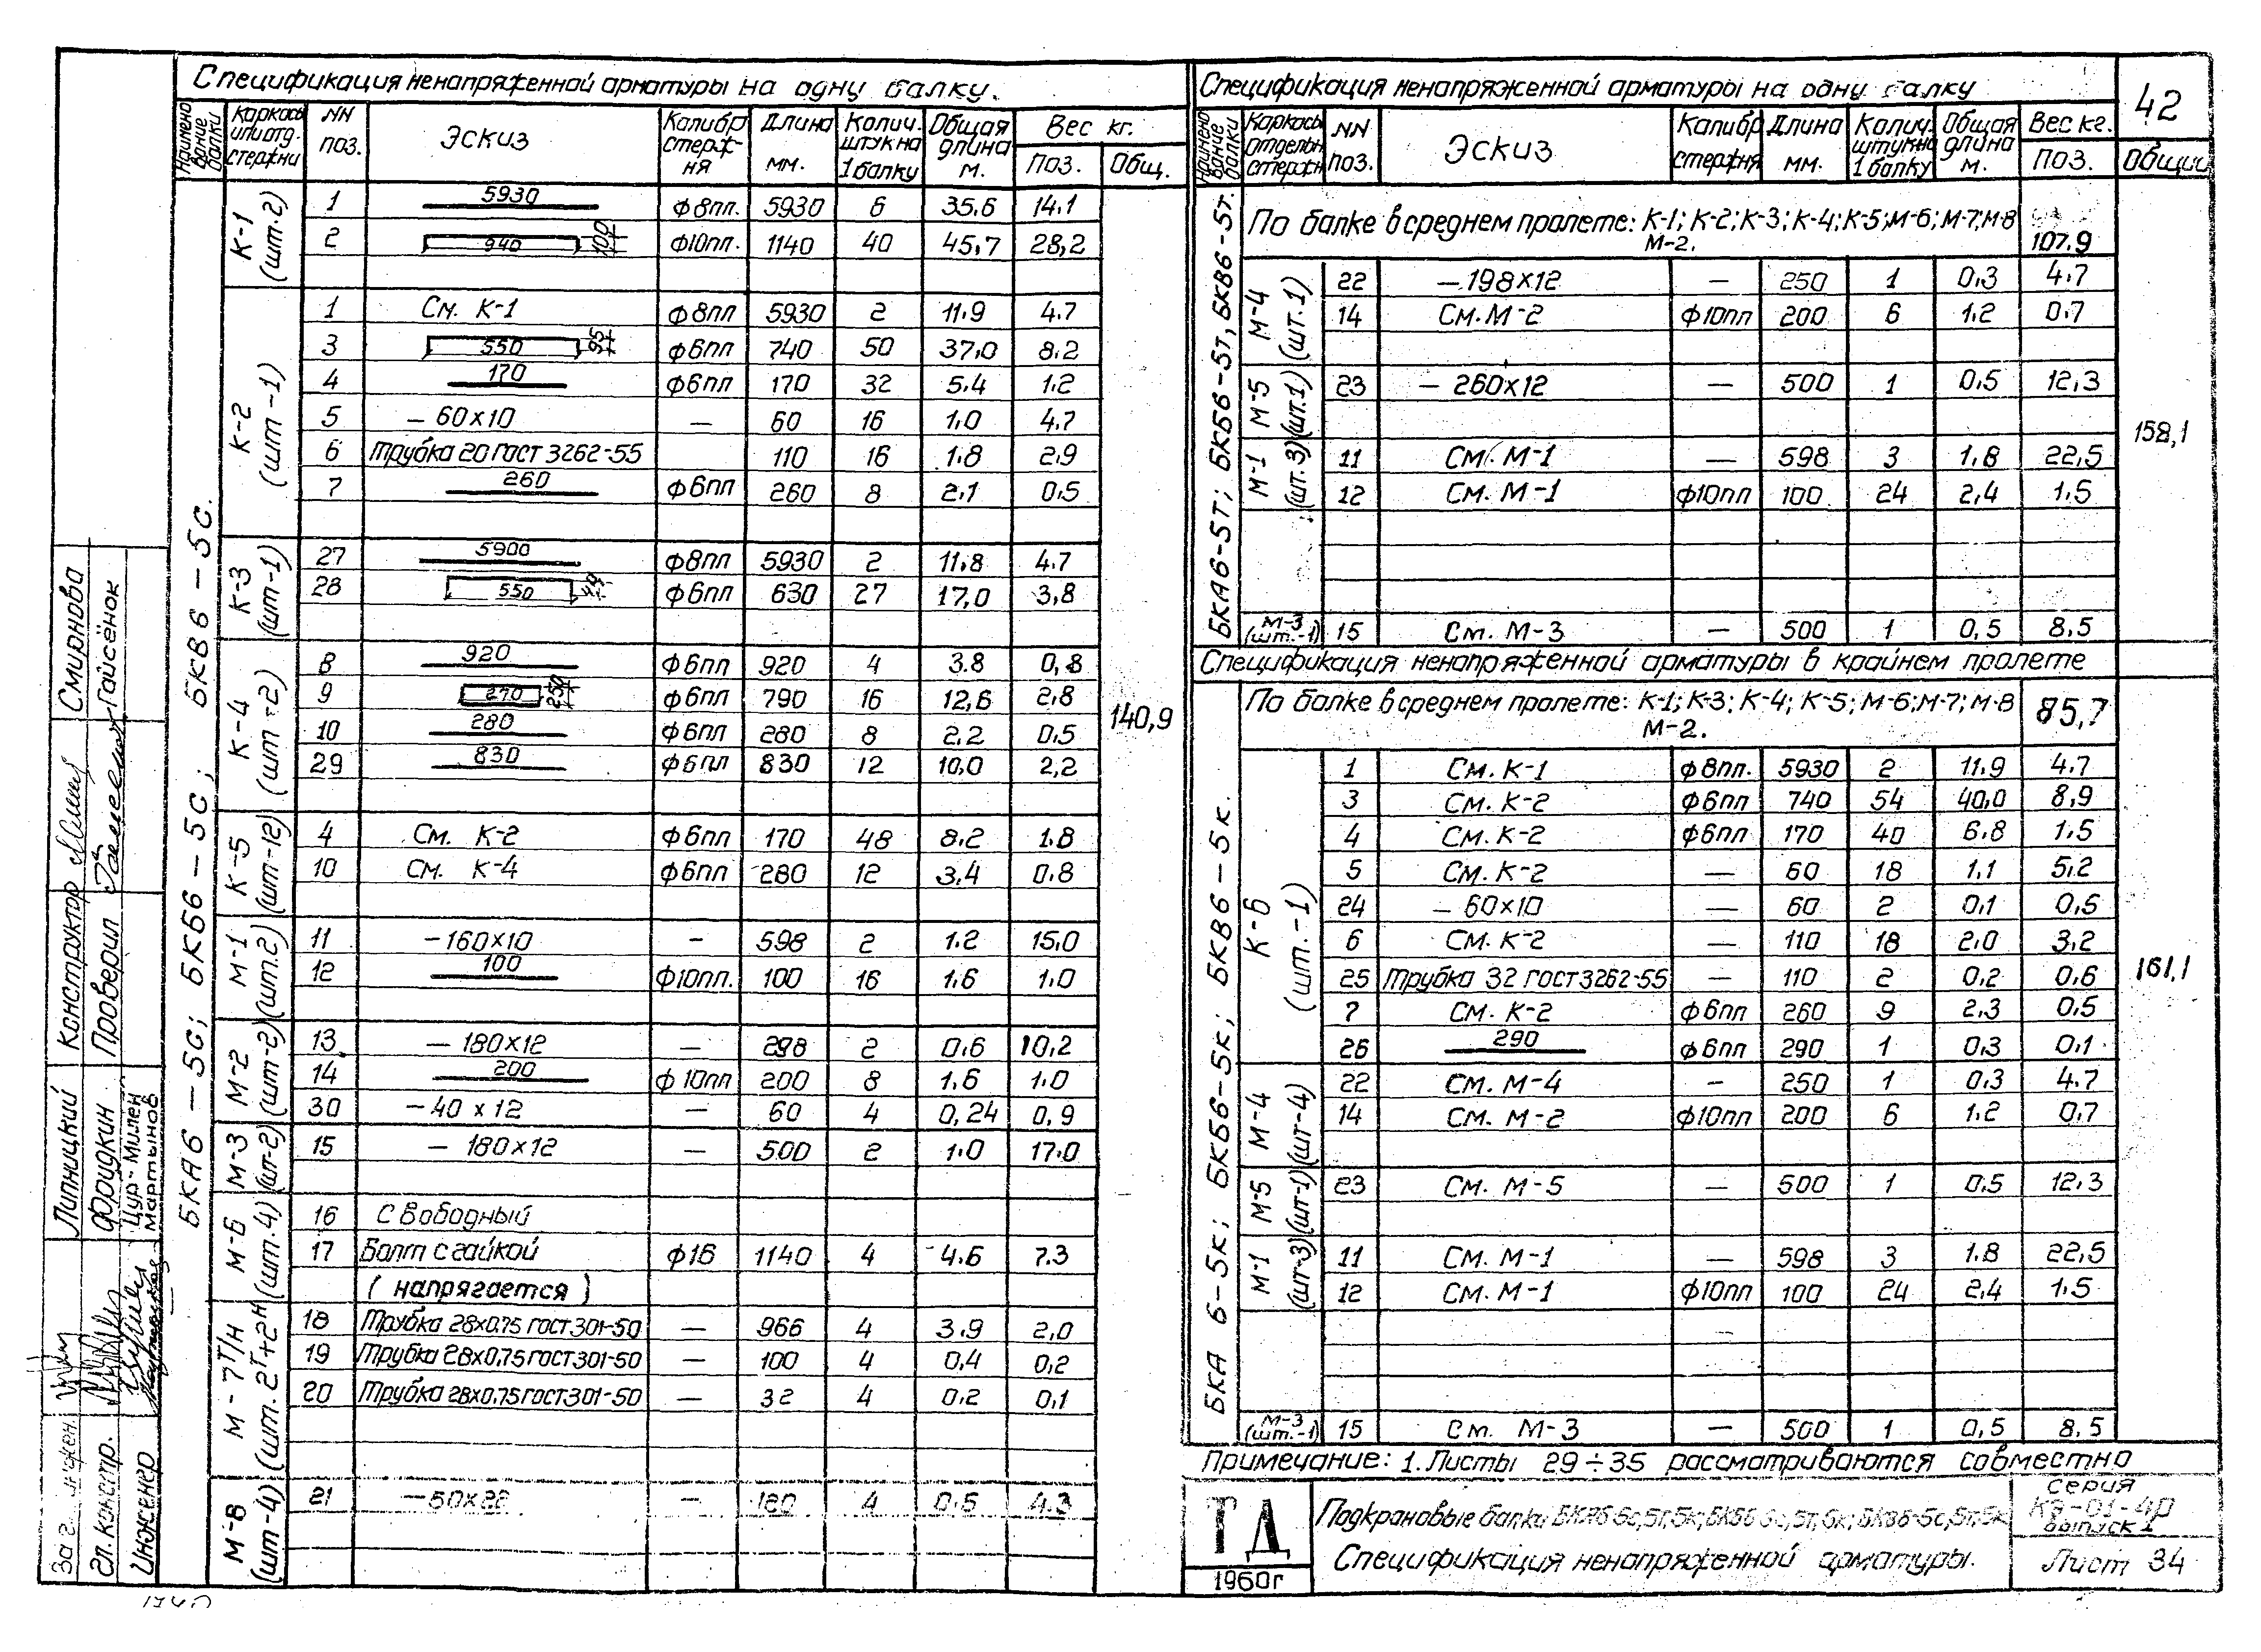 42
Спецификация ненапряженной арматуры на одну балку.
Наименование балки Каркасы или отд. стержни NN поз. Эскиз Калибр стержня Длина мм. Колич. штук на 1 балку Общая длина м. Вес кг. Поз. Общ.
БКА6-5с; БКБ6-5с; БКВ6-5с.
К-1 (шт.2)
1 5930 ф8пл. 5930 6 35,6 14,1
2 940 100 ф10пл. 1140 40 45,7 28,2
К-2 (шт-1)
1 См. К-1 ф8пл 5930 2 11.9 4.7
3 550 95 ф6пл 740 50 37,0 8.2
4 170 ф6пл 170 32 5.4 1.2
5 -60×10 — 60 16 1.0 4.7
6 Трубка 20 ГОСТ 3262-55 110 16 1.8 2.9
7 260 ф6пл 260 8 2.1 0.5
К-3 (шт-1)
27 5900 ф8пл 5930 2 11.8 4.7
28 550 ф6пл 630 27 17,0 3,8
К-4 (шт-2)
8 920 ф6пл 920 4 3.8 0,8
9 270 250 ф6пл 790 16 12,6 2.8
10 280 ф6пл 280 8 2.2 0.5
29 830 ф6пл 830 12 10,0 2,2
140,9
К-5 (шт-12)
4 См. К-2 ф6пл 170 48 8.2 1.8
10 См. К-4 ф6пл 280 12 3.4 0.8
М-1 (шт.2)
11 -160×10 - 598 2 1.2 15.0
12 100 ф10пл. 100 16 1.6 1.0
М-2 (шт-2)
13 -180×12 — 298 2 0.6 10.2
14 200 ф10пл 200 8 1.6 1.0
30 -40×12 — 60 4 0,24 0,9
М-3 (шт-2)
15 -180×12 — 500 2 1.0 17.0
М-6 (шт.4)
16 Свободный
17 Болт с гайкой ф16 1140 4 4.6 7.3
(напрягается)
М-7Т/Н (шт.2Т+2Н)
18 Трубка 28×0.75 ГОСТ 301-50 — 966 4 3.9 2.0
19 Трубка 28×0,75 ГОСТ 301-50 — 100 4 0,4 0,2
20 Трубка 28×0,75 ГОСТ 301-50 — 32 4 0.2 0,1
М-8 (шт-4)
21 -50×22 — 180 4 0.5 4.3
Спецификация ненапряженной арматуры на одну балку
Наименование балки Каркасы отдельн. стержн. NN поз. Эскиз Калибр стержня Длина мм. Колич. штук на 1 балку Общая длина м. Вес кг. поз. Общий
БКА6-5т; БКБ6-5т, БКВ6-5т.
По балке в среднем пролете: К-1; К-2; К-3; К-4; К-5; М-6; М-7; М-8
М-2. 107.9
М-4 (шт.1)
22 -198×12 — 250 1 0.3 4.7
14 См. М-2 ф10пл 200 6 1.2 0.7
М-5 (шт.1)
23 -260×12 — 500 1 0.5 12,3
158,1
М-1 (шт.3)
11 См. М-1 — 598 3 1.8 22,5
12 См. М-1 ф10пл 100 24 2,4 1.5
М-3 (шт.-1) 15 См. М-3 — 500 1 0,5 8,5
Спецификация ненапряженной арматуры в крайнем пролете
БКА 6-5к; БКБ6-5к; БКВ6-5к.
По балке в среднем пролете: К-1; К-3; К-4; К-5; М-6; М-7; М-8
М-2. 85,7
К-6 (шт.-1)
1 См. К-1 ф8пл. 5930 2 11.9 4.7
3 См. К-2 ф6пл 740 54 40,0 8,9
4 См. К-2 ф6пл 170 40 6.8 1.5
5 См. К-2 — 60 18 1.1 5.2
24 -60×10 — 60 2 0.1 0.5
6 См. К-2 — 110 18 2.0 3.2
161,1
25 Трубка 32 ГОСТ 3262-55 — 110 2 0.2 0.6
7 См. К-2 ф6пл 260 9 2.3 0.5
26 290 ф6пл 290 1 0.3 0.1
М-4 (шт-4)
22 См. М-4 - 250 1 0.3 4.7
14 См. М-2 ф10пл 200 6 1.2 0.7
М-5 (шт-1)
23 См. М-5 — 500 1 0.5 12.3
М-1 (шт-3)
11 См. М-1 — 598 3 1.8 22,5
12 См. М-1 ф10пл 100 24 2.4 1.5
М-3 (шт.-1) 15 См. М-3 — 500 1 0,5 8,5
Примечание: 1. Листы 29÷35 рассматриваются совместно
ТД
1960г
Подкрановые балки
Спецификация ненапряженной арматуры.
серия
выпуск 1
Лист 34
Конструктор Смирнова
Проверил Гайсёнок
Липницкий
Гл. констр. Фрудкин
Инженер
Мартынов